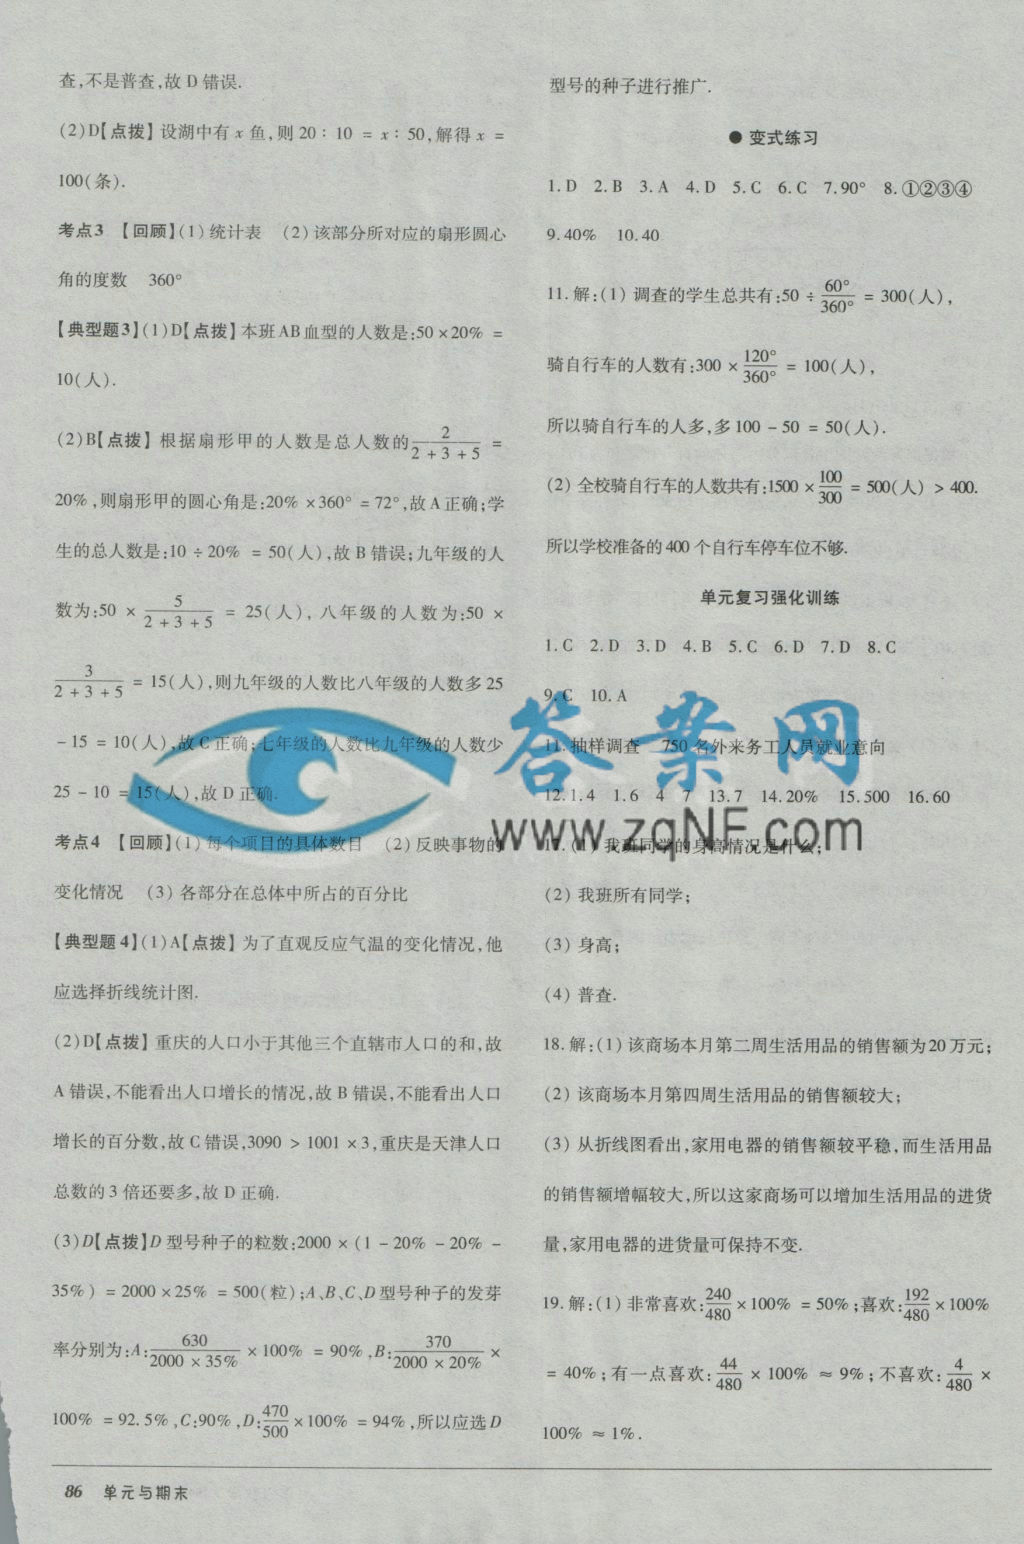 查,不是普查,故 D 错误.
(2)D【点拨】设湖中有 x 鱼,则 20∶10 = x∶50,解得 x =
100(条).
考点3 【回顾】(1) 统计表 (2) 该部分所对应的扇形圆心
角的度数 360°
【典型题3】(1)D【点拨】本班AB血型的人数是:50×20% =
10(人).
(2)B【点拨】根据扇形甲的人数是总人数的 2/(2+3+5) =
20%,则扇形甲的圆心角是:20%×360° = 72°,故A正确;学
生的总人数是:10÷20% = 50(人),故 B 错误;九年级的人
数为:50 × 5/(2+3+5) = 25(人), 八年级的人数为:50 ×
3/(2+3+5) = 15(人),则九年级的人数比八年级的人数多25
-15 = 10(人),故C正确;七年级的人数比九年级的人数少
25-10 = 15(人),故 D 正确.
考点4 【回顾】(1) 每个项目的具体数目 (2) 反映事物的
变化情况 (3) 各部分在总体中所占的百分比
【典型题4】(1)A【点拨】为了直观反应气温的变化情况,他
应选择折线统计图.
(2)D【点拨】重庆的人口小于其他三个直辖市人口的和,故
A 错误,不能看出人口增长的情况,故 B 错误,不能看出人口
增长的百分数,故 C 错误,3090 > 1001×3,重庆是天津人口
总数的 3 倍还要多,故 D 正确.
(3)D【点拨】D 型号种子的粒数:2000×(1-20%-20%-
35%) = 2000×25% = 500(粒);A、B、C、D型号种子的发芽
率分别为:A: 630/(2000×35%) ×100% = 90%,B: 370/(2000×20%) ×
100% = 92.5%,C:90%,D: 470/500 ×100% = 94%,所以应选D
型号的种子进行推广.
● 变式练习
1.D 2.B 3.A 4.D 5.C 6.C 7.90° 8.①②③④
9.40% 10.40
11.解:(1) 调查的学生总共有:50÷ 60°/360° = 300(人),
骑自行车的人数有:300× 120°/360° = 100(人),
所以骑自行车的人多,多100-50 = 50(人).
(2) 全校骑自行车的人数共有:1500× 100/300 = 500(人) > 400.
所以学校准备的400个自行车停车位不够.
单元复习强化训练
1.C 2.D 3.D 4.B 5.C 6.D 7.D 8.C
9.C 10.A
11.抽样调查 750 名外来务工人员就业意向
12.1.4 1.6 4 7 13.7 14.20% 15.500 16.60
17.(1) 我班同学的身高情况是什么;
(2) 我班所有同学;
(3) 身高;
(4) 普查.
18.解:(1) 该商场本月第二周生活用品的销售额为20万元;
(2) 该商场本月第四周生活用品的销售额较大;
(3) 从折线图看出,家用电器的销售额较平稳,而生活用品
的销售额增幅较大,所以这家商场可以增加生活用品的进货
量,家用电器的进货量可保持不变.
19.解:(1) 非常喜欢: 240/480 ×100% = 50%;喜欢: 192/480 ×100%
= 40%;有一点喜欢: 44/480 ×100% ≈ 9%;不喜欢: 4/480 ×
100% ≈ 1%.
答案网
www.zqNF.com
86 单元与期末